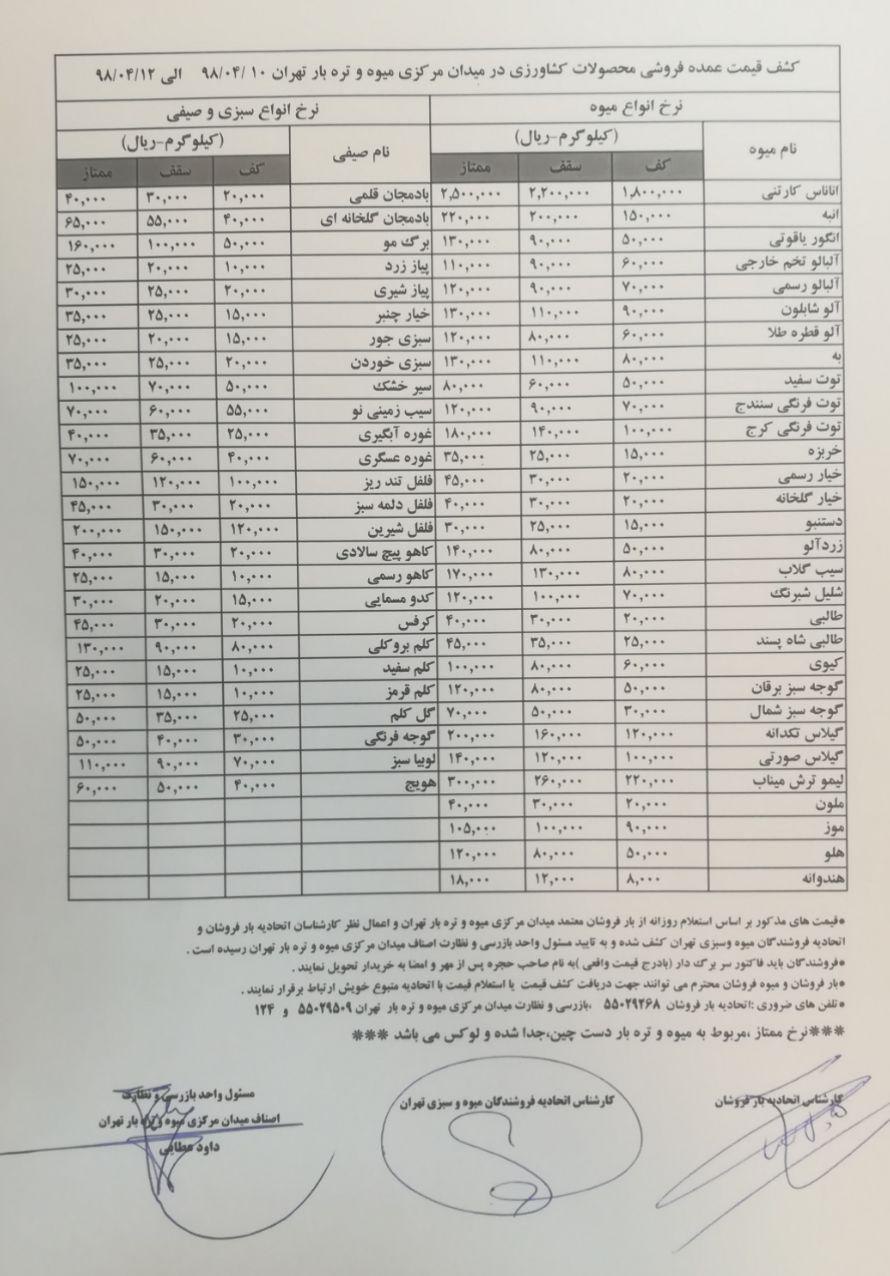 کشف قیمت عمده فروشی محصولات کشاورزی در میدان مرکزی میوه و تره بار تهران ۹۸/۰۴/۱۰ الی ۹۸/۰۴/۱۲
نرخ انواع میوه نرخ انواع سبزی و صیفی
نام میوه (کیلوگرم-ریال) نام صیفی (کیلوگرم-ریال)
کف سقف ممتاز کف سقف ممتاز
اناناس کارتنی ۱,۸۰۰,۰۰۰ ۲,۲۰۰,۰۰۰ ۲,۵۰۰,۰۰۰ بادمجان قلمی ۲۰,۰۰۰ ۳۰,۰۰۰ ۴۰,۰۰۰
انبه ۱۵۰,۰۰۰ ۲۰۰,۰۰۰ ۲۲۰,۰۰۰ بادمجان گلخانه ای ۴۰,۰۰۰ ۵۵,۰۰۰ ۶۵,۰۰۰
انگور یاقوتی ۵۰,۰۰۰ ۹۰,۰۰۰ ۱۳۰,۰۰۰ برگ مو ۵۰,۰۰۰ ۱۰۰,۰۰۰ ۱۶۰,۰۰۰
آلبالو تخم خارجی ۶۰,۰۰۰ ۹۰,۰۰۰ ۱۱۰,۰۰۰ پیاز زرد ۱۰,۰۰۰ ۲۰,۰۰۰ ۲۵,۰۰۰
آلبالو رسمی ۷۰,۰۰۰ ۹۰,۰۰۰ ۱۲۰,۰۰۰ پیاز شیری ۲۰,۰۰۰ ۲۵,۰۰۰ ۳۰,۰۰۰
آلو شابلون ۹۰,۰۰۰ ۱۱۰,۰۰۰ ۱۳۰,۰۰۰ خیار چنبر ۱۵,۰۰۰ ۲۵,۰۰۰ ۳۵,۰۰۰
آلو قطره طلا ۶۰,۰۰۰ ۸۰,۰۰۰ ۱۲۰,۰۰۰ سبزی جور ۱۵,۰۰۰ ۲۰,۰۰۰ ۲۵,۰۰۰
به ۸۰,۰۰۰ ۱۱۰,۰۰۰ ۱۳۰,۰۰۰ سبزی خوردن ۲۰,۰۰۰ ۲۵,۰۰۰ ۳۵,۰۰۰
توت سفید ۵۰,۰۰۰ ۶۰,۰۰۰ ۸۰,۰۰۰ سیر خشک ۵۰,۰۰۰ ۷۰,۰۰۰ ۱۰۰,۰۰۰
توت فرنگی سنندج ۷۰,۰۰۰ ۹۰,۰۰۰ ۱۲۰,۰۰۰ سیب زمینی نو ۵۵,۰۰۰ ۶۰,۰۰۰ ۷۰,۰۰۰
توت فرنگی کرج ۱۰۰,۰۰۰ ۱۴۰,۰۰۰ ۱۸۰,۰۰۰ غوره آبگیری ۲۵,۰۰۰ ۳۵,۰۰۰ ۴۰,۰۰۰
خربزه ۱۵,۰۰۰ ۲۵,۰۰۰ ۳۵,۰۰۰ غوره عسگری ۴۰,۰۰۰ ۶۰,۰۰۰ ۷۰,۰۰۰
خیار رسمی ۲۰,۰۰۰ ۳۰,۰۰۰ ۴۵,۰۰۰ فلفل تند ریز ۱۰۰,۰۰۰ ۱۲۰,۰۰۰ ۱۵۰,۰۰۰
خیار گلخانه ۲۰,۰۰۰ ۳۰,۰۰۰ ۴۰,۰۰۰ فلفل دلمه سبز ۲۰,۰۰۰ ۳۰,۰۰۰ ۴۵,۰۰۰
دستنبو ۱۵,۰۰۰ ۲۵,۰۰۰ ۳۰,۰۰۰ فلفل شیرین ۱۲۰,۰۰۰ ۱۵۰,۰۰۰ ۲۰۰,۰۰۰
زردآلو ۵۰,۰۰۰ ۸۰,۰۰۰ ۱۴۰,۰۰۰ کاهو پیچ سالادی ۲۰,۰۰۰ ۳۰,۰۰۰ ۴۰,۰۰۰
سیب گلاب ۸۰,۰۰۰ ۱۳۰,۰۰۰ ۱۷۰,۰۰۰ کاهو رسمی ۱۰,۰۰۰ ۱۵,۰۰۰ ۲۵,۰۰۰
شلیل شبرنگ ۷۰,۰۰۰ ۱۰۰,۰۰۰ ۱۲۰,۰۰۰ کدو مسمایی ۱۵,۰۰۰ ۲۰,۰۰۰ ۳۰,۰۰۰
طالبی ۲۰,۰۰۰ ۳۰,۰۰۰ ۴۰,۰۰۰ کرفس ۲۰,۰۰۰ ۳۰,۰۰۰ ۴۵,۰۰۰
طالبی شاه پسند ۲۵,۰۰۰ ۳۵,۰۰۰ ۴۵,۰۰۰ کلم بروکلی ۸۰,۰۰۰ ۹۰,۰۰۰ ۱۳۰,۰۰۰
کیوی ۶۰,۰۰۰ ۸۰,۰۰۰ ۱۰۰,۰۰۰ کلم سفید ۱۰,۰۰۰ ۱۵,۰۰۰ ۲۵,۰۰۰
گوجه سبز برقان ۵۰,۰۰۰ ۸۰,۰۰۰ ۱۲۰,۰۰۰ کلم قرمز ۱۰,۰۰۰ ۱۵,۰۰۰ ۲۵,۰۰۰
گوجه سبز شمال ۳۰,۰۰۰ ۵۰,۰۰۰ ۷۰,۰۰۰ گل کلم ۲۵,۰۰۰ ۳۵,۰۰۰ ۵۰,۰۰۰
گیلاس تکدانه ۱۲۰,۰۰۰ ۱۶۰,۰۰۰ ۲۰۰,۰۰۰ گوجه فرنگی ۳۰,۰۰۰ ۴۰,۰۰۰ ۵۰,۰۰۰
گیلاس صورتی ۱۰۰,۰۰۰ ۱۲۰,۰۰۰ ۱۴۰,۰۰۰ لوبیا سبز ۷۰,۰۰۰ ۹۰,۰۰۰ ۱۱۰,۰۰۰
لیمو ترش میناب ۲۲۰,۰۰۰ ۲۶۰,۰۰۰ ۳۰۰,۰۰۰ هویج ۴۰,۰۰۰ ۵۰,۰۰۰ ۶۰,۰۰۰
ملون ۲۰,۰۰۰ ۳۰,۰۰۰ ۴۰,۰۰۰
موز ۹۰,۰۰۰ ۱۰۰,۰۰۰ ۱۰۵,۰۰۰
هلو ۵۰,۰۰۰ ۸۰,۰۰۰ ۱۲۰,۰۰۰
هندوانه ۸,۰۰۰ ۱۲,۰۰۰ ۱۸,۰۰۰
*قیمت های مذکور بر اساس استعلام روزانه از بار فروشان معتمد میدان مرکزی میوه و تره بار تهران و اعمال نظر کارشناسان اتحادیه بار فروشان و
اتحادیه فروشندگان میوه وسبزی تهران کشف شده و به تایید مسئول واحد بازرسی و نظارت اصناف میدان مرکزی میوه و تره بار تهران رسیده است .
*فروشندگان باید فاکتور سر برگ دار (بادرج قیمت واقعی )به نام صاحب حجره پس از مهر و امضا به خریدار تحویل نمایند .
*بار فروشان و میوه فروشان محترم می توانند جهت دریافت کشف قیمت یا استعلام قیمت با اتحادیه متبوع خویش ارتباط برقرار نمایند .
*تلفن های ضروری :اتحادیه بار فروشان ۵۵۰۲۹۲۶۸ ،بازرسی و نظارت میدان مرکزی میوه و تره بار تهران ۵۵۰۲۹۵۰۹ و ۱۲۴
***نرخ ممتاز ،مربوط به میوه و تره بار دست چین،جدا شده و لوکس می باشد ***
کارشناس اتحادیه بار فروشان کارشناس اتحادیه فروشندگان میوه و سبزی تهران مسئول واحد بازرسی و نظارت
اصناف میدان مرکزی میوه و تره بار تهران
داود عطایی